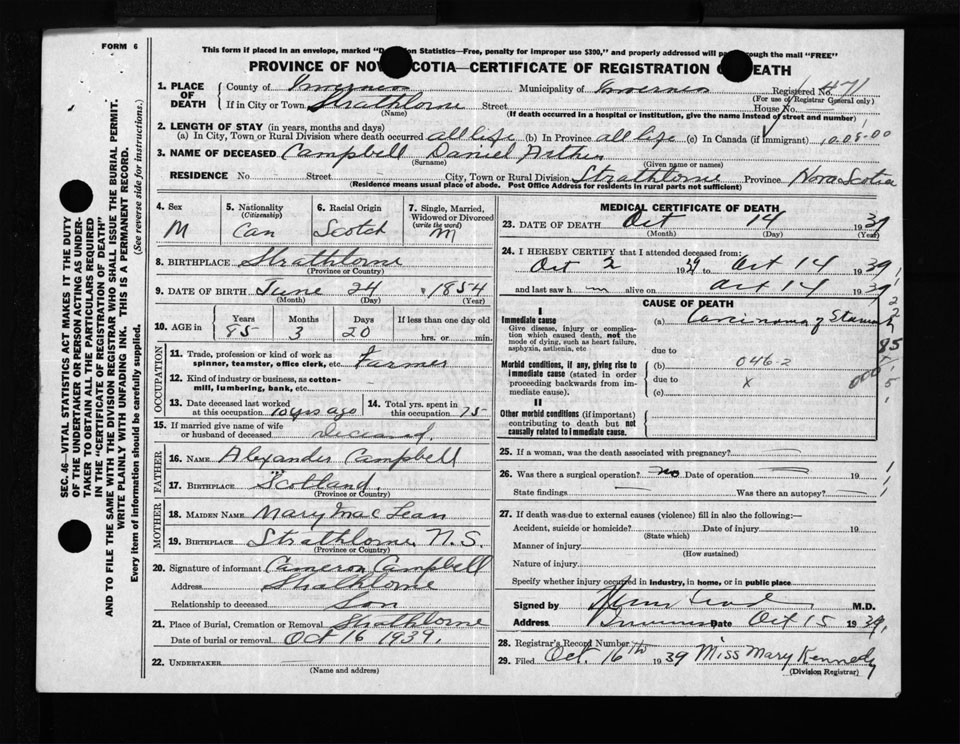 FORM 6
This form if placed in an envelope, marked "D n Statistics—Free, penalty for improper use $300," and properly addressed will pa through the mail "FREE"
PROVINCE OF NOV SCOTIA—CERTIFICATE OF REGISTRATION O DEATH
1. PLACE OF DEATH
County of Inverness Municipality of Inverness Registered No. 471
(For use of Registrar General only)
If in City or Town Strathlorne Street House No.
(Name) (If death occurred in a hospital or institution, give the name instead of street and number)
2. LENGTH OF STAY (in years, months and days)
(a) In City, Town or Rural Division where death occurred all life (b) In Province all life (c) In Canada (if immigrant) 1008-00
3. NAME OF DECEASED Campbell Daniel Arthur
(Surname) (Given name or names)
RESIDENCE No Street City, Town or Rural Division Strathlorne Province Nova Scotia
(Residence means usual place of abode. Post Office Address for residents in rural parts not sufficient)
4. Sex M
5. Nationality (Citizenship) Can
6. Racial Origin Scotch
7. Single, Married, Widowed or Divorced (write the word) M
8. BIRTHPLACE Strathlorne
(Province or Country)
9. DATE OF BIRTH June 24 1854
(Month) (Day) (Year)
10. AGE in Years Months Days If less than one day old
85 3 20 hrs. or min.
OCCUPATION
11. Trade, profession or kind of work as spinner, teamster, office clerk, etc. Farmer
12. Kind of industry or business, as cotton-mill, lumbering, bank, etc.
13. Date deceased last worked at this occupation 10 yrs ago
14. Total yrs. spent in this occupation 75
15. If married give name of wife or husband of deceased Deceased.
FATHER
16. NAME Alexander Campbell
17. BIRTHPLACE Scotland.
(Province or Country)
MOTHER
18. MAIDEN NAME Mary Mac Lean
19. BIRTHPLACE Strathlorne N.S.
(Province or Country)
20. Signature of informant Cameron Campbell
Address Strathlorne
Relationship to deceased Son
21. Place of Burial, Cremation or Removal Strathlorne
Date of burial or removal Oct 16 1939.
22. UNDERTAKER
(Name and address)
MEDICAL CERTIFICATE OF DEATH
23. DATE OF DEATH Oct 14 1939
(Month) (Day) (Year)
24. I HEREBY CERTIFY that I attended deceased from:
Oct 2 1939 to Oct 14 1939
and last saw h m alive on Oct 14 1939
CAUSE OF DEATH
I
Immediate cause
Give disease, injury or complication which caused death, not the mode of dying, such as heart failure, asphyxia, asthenia, etc
(a) Carcinoma of
due to
Morbid conditions, if any, giving rise to immediate cause (stated in order proceeding backwards from immediate cause).
(b) 046-2
due to x
(c)
II
Other morbid conditions (if important) contributing to death but not causally related to immediate cause.
25. If a woman, was the death associated with pregnancy?
26. Was there a surgical operation? no Date of operation 19
State findings Was there an autopsy?
27. If death was due to external causes (violence) fill in also the following:—
Accident, suicide or homicide? Date of injury 19
(State which)
Manner of injury
(How sustained)
Nature of injury
Specify whether injury occurred in industry, in home, or in public place
Signed by M.D.
Address Date Oct 15 1939.
28. Registrar's Record Number
29. Filed Oct. 16th 1939 Miss Mary Kennedy
(Division Registrar)
SEC. 46—VITAL STATISTICS ACT MAKES IT THE DUTY
OF THE UNDERTAKER OR PERSON ACTING AS UNDER-
TAKER TO OBTAIN ALL THE PARTICULARS REQUIRED
IN THE "CERTIFICATE OF REGISTRATION OF DEATH"
AND TO FILE THE SAME WITH THE DIVISION REGISTRAR WHO SHALL ISSUE THE BURIAL PERMIT.
WRITE PLAINLY WITH UNFADING INK. THIS IS A PERMANENT RECORD.
Every item of information should be carefully supplied. (See reverse side for instructions.)